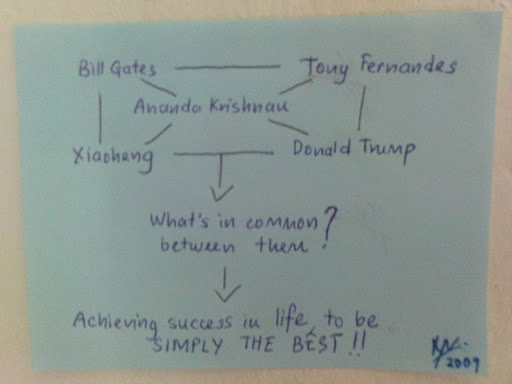 Bill Gates Tony Fernandes
Ananda Krishnan
Xiaoheng Donald Trump
What's in common?
between them
Achieving success in life, to be
SIMPLY THE BEST !!
2009